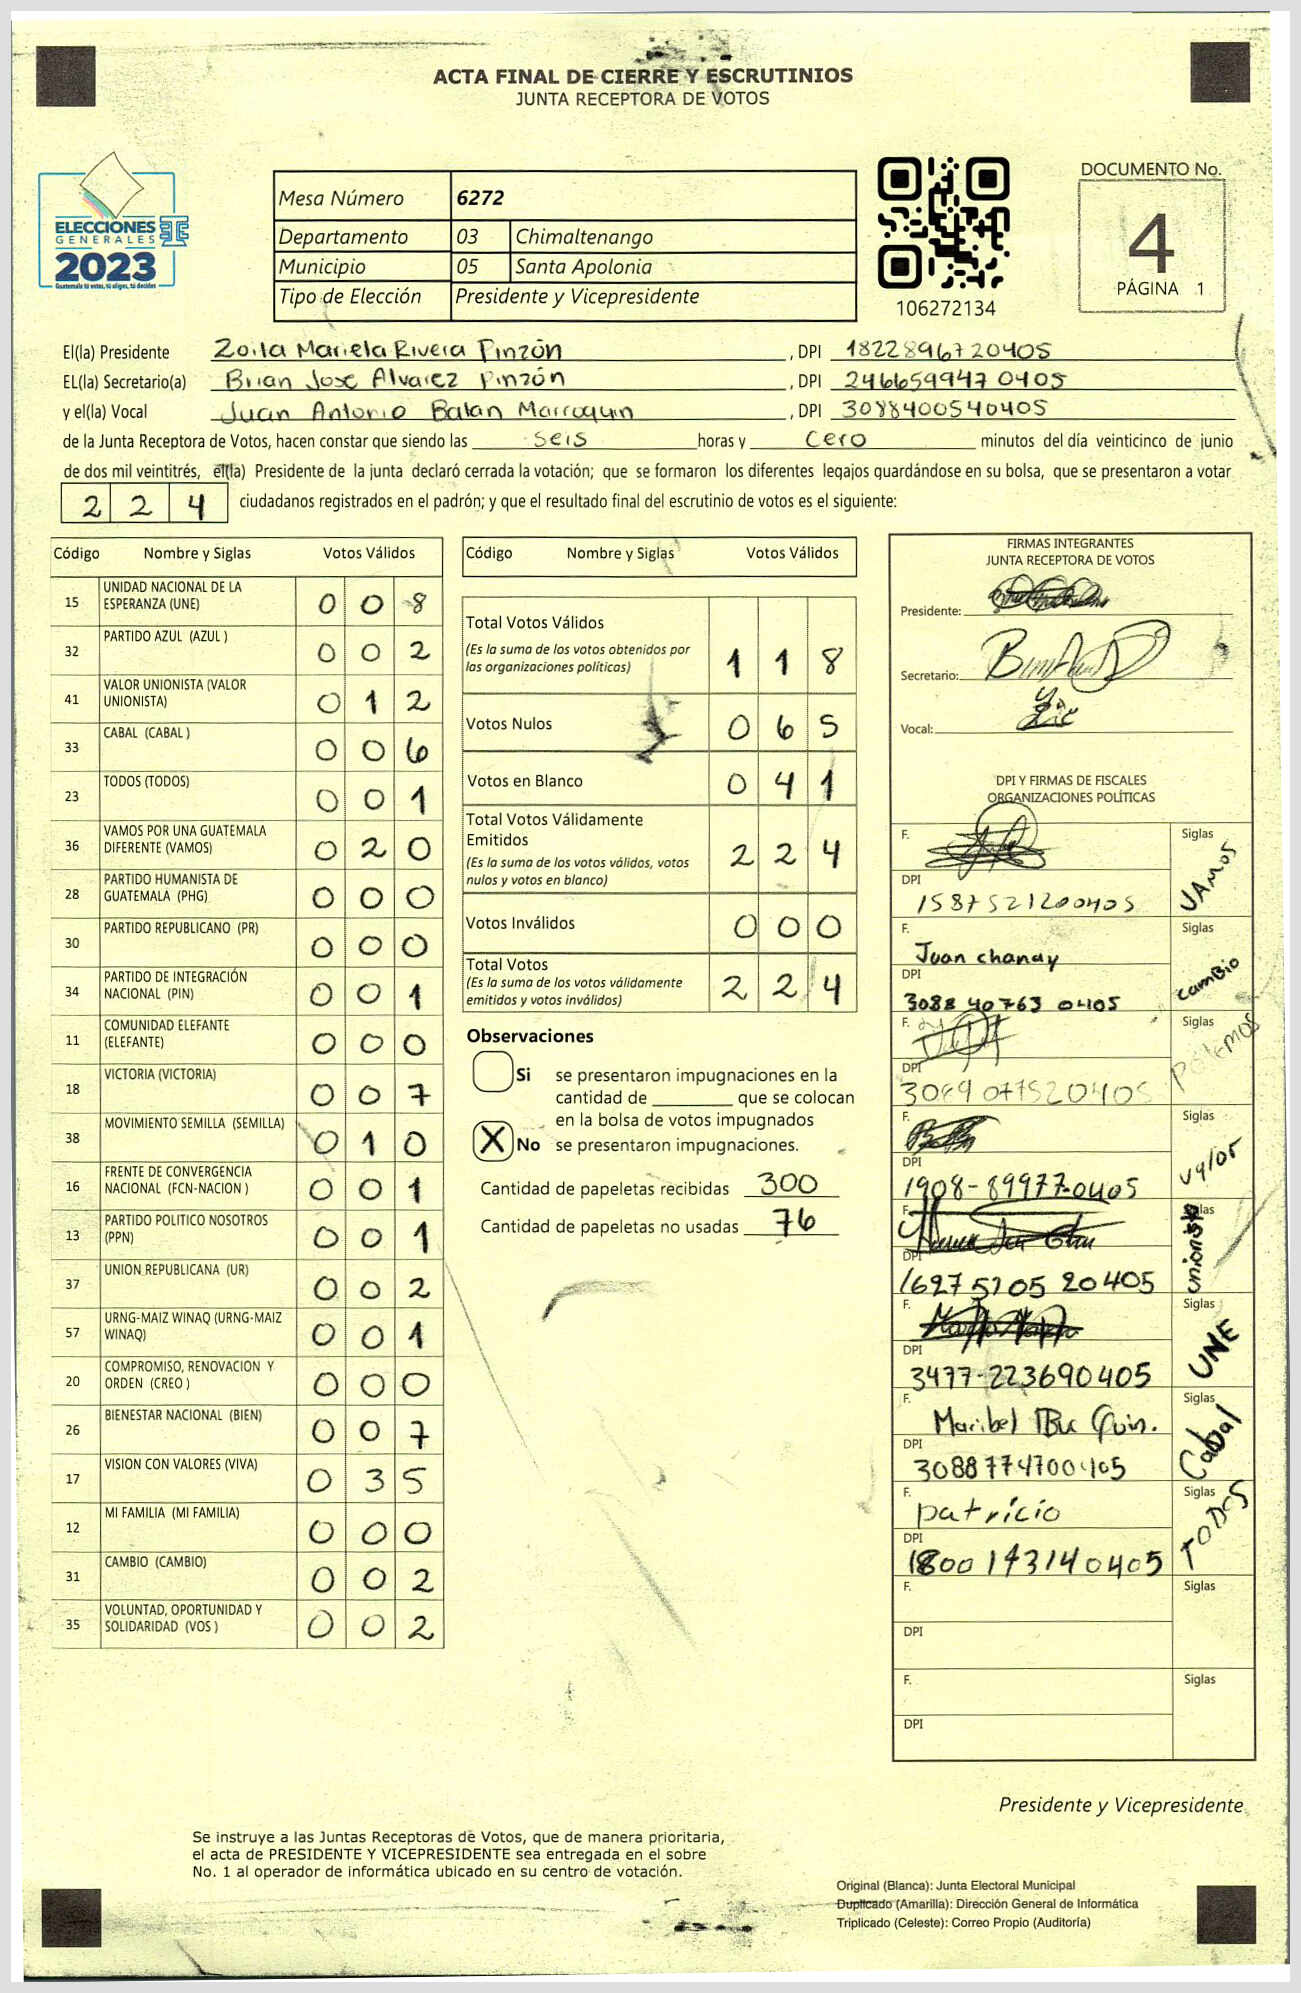 ACTA FINAL DE CIERRE Y ESCRUTINIOS
JUNTA RECEPTORA DE VOTOS
ELECCIONES
GENERALES
2023
Guatemala tú votas, tú eliges, tú decides
Mesa Número 6272
Departamento 03 Chimaltenango
Municipio 05 Santa Apolonia
Tipo de Elección Presidente y Vicepresidente
106272134
DOCUMENTO No.
4
PÁGINA 1
El(la) Presidente Zoila Mariela Rivera Pinzón , DPI 1822896720405
EL(la) Secretario(a) Brian Jose Alvarez Pinzón , DPI 2466599470405
y el(la) Vocal Juan Antonio Balan Marroquin , DPI 3088400540405
de la Junta Receptora de Votos, hacen constar que siendo las seis horas y cero minutos del día veinticinco de junio
de dos mil veintitrés, el(la) Presidente de la junta declaró cerrada la votación; que se formaron los diferentes legajos guardándose en su bolsa, que se presentaron a votar
2 2 4 ciudadanos registrados en el padrón; y que el resultado final del escrutinio de votos es el siguiente:
Código Nombre y Siglas Votos Válidos
15 UNIDAD NACIONAL DE LA ESPERANZA (UNE) 0 0 8
32 PARTIDO AZUL (AZUL ) 0 0 2
41 VALOR UNIONISTA (VALOR UNIONISTA) 0 1 2
33 CABAL (CABAL ) 0 0 6
23 TODOS (TODOS) 0 0 1
36 VAMOS POR UNA GUATEMALA DIFERENTE (VAMOS) 0 2 0
28 PARTIDO HUMANISTA DE GUATEMALA (PHG) 0 0 0
30 PARTIDO REPUBLICANO (PR) 0 0 0
34 PARTIDO DE INTEGRACIÓN NACIONAL (PIN) 0 0 1
11 COMUNIDAD ELEFANTE (ELEFANTE) 0 0 0
18 VICTORIA (VICTORIA) 0 0 7
38 MOVIMIENTO SEMILLA (SEMILLA) 0 1 0
16 FRENTE DE CONVERGENCIA NACIONAL (FCN-NACION ) 0 0 1
13 PARTIDO POLITICO NOSOTROS (PPN) 0 0 1
37 UNION REPUBLICANA (UR) 0 0 2
57 URNG-MAIZ WINAQ (URNG-MAIZ WINAQ) 0 0 1
20 COMPROMISO, RENOVACION Y ORDEN (CREO ) 0 0 0
26 BIENESTAR NACIONAL (BIEN) 0 0 7
17 VISION CON VALORES (VIVA) 0 3 5
12 MI FAMILIA (MI FAMILIA) 0 0 0
31 CAMBIO (CAMBIO) 0 0 2
35 VOLUNTAD, OPORTUNIDAD Y SOLIDARIDAD (VOS ) 0 0 2
Código Nombre y Siglas Votos Válidos
Total Votos Válidos
(Es la suma de los votos obtenidos por
las organizaciones políticas) 1 1 8
Votos Nulos 0 6 5
Votos en Blanco 0 4 1
Total Votos Válidamente
Emitidos
(Es la suma de los votos válidos, votos
nulos y votos en blanco) 2 2 4
Votos Inválidos 0 0 0
Total Votos
(Es la suma de los votos válidamente
emitidos y votos inválidos) 2 2 4
Observaciones
Si se presentaron impugnaciones en la
cantidad de ________ que se colocan
en la bolsa de votos impugnados
X No se presentaron impugnaciones.
Cantidad de papeletas recibidas 300
Cantidad de papeletas no usadas 76
FIRMAS INTEGRANTES
JUNTA RECEPTORA DE VOTOS
Presidente:
Secretario:
Vocal:
DPI Y FIRMAS DE FISCALES
ORGANIZACIONES POLÍTICAS
F. Siglas VAMOS
DPI
1587521200405
F. Juan chanay Siglas cambio
DPI
3088 40763 0405
F. Siglas Podemos
DPI
3089077520405
F. Siglas valor
DPI
1908-89977-0405
F. Siglas unionista
DPI
1627 5205 20405
F. Siglas UNE
DPI
3477-223690405
F. Maribel Siglas Cabal
DPI
3088774700405
F. patricio Siglas TODOS
DPI
1800143140405
F. Siglas
DPI
F. Siglas
DPI
Presidente y Vicepresidente
Se instruye a las Juntas Receptoras de Votos, que de manera prioritaria,
el acta de PRESIDENTE Y VICEPRESIDENTE sea entregada en el sobre
No. 1 al operador de informática ubicado en su centro de votación.
Original (Blanca): Junta Electoral Municipal
Duplicado (Amarilla): Dirección General de Informática
Triplicado (Celeste): Correo Propio (Auditoría)